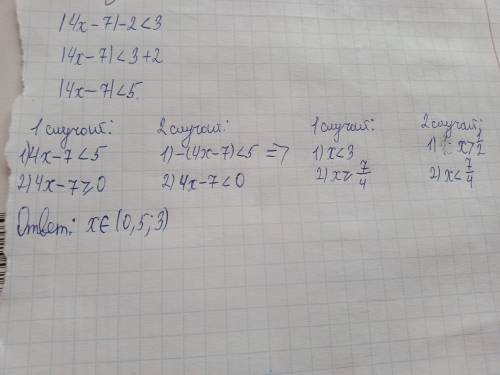 |4x-7|-2<3
|4x-7|<3+2
|4x-7|<5
1 случай: 2 случай: 1 случай: 2 случай:
1) 4x-7<5 1) -(4x-7)<5 => 1) x<3 1) x>1/2
2) 4x-7≥0 2) 4x-7<0 2) x≥7/4 2) x<7/4
Ответ: x∈(0,5;3)